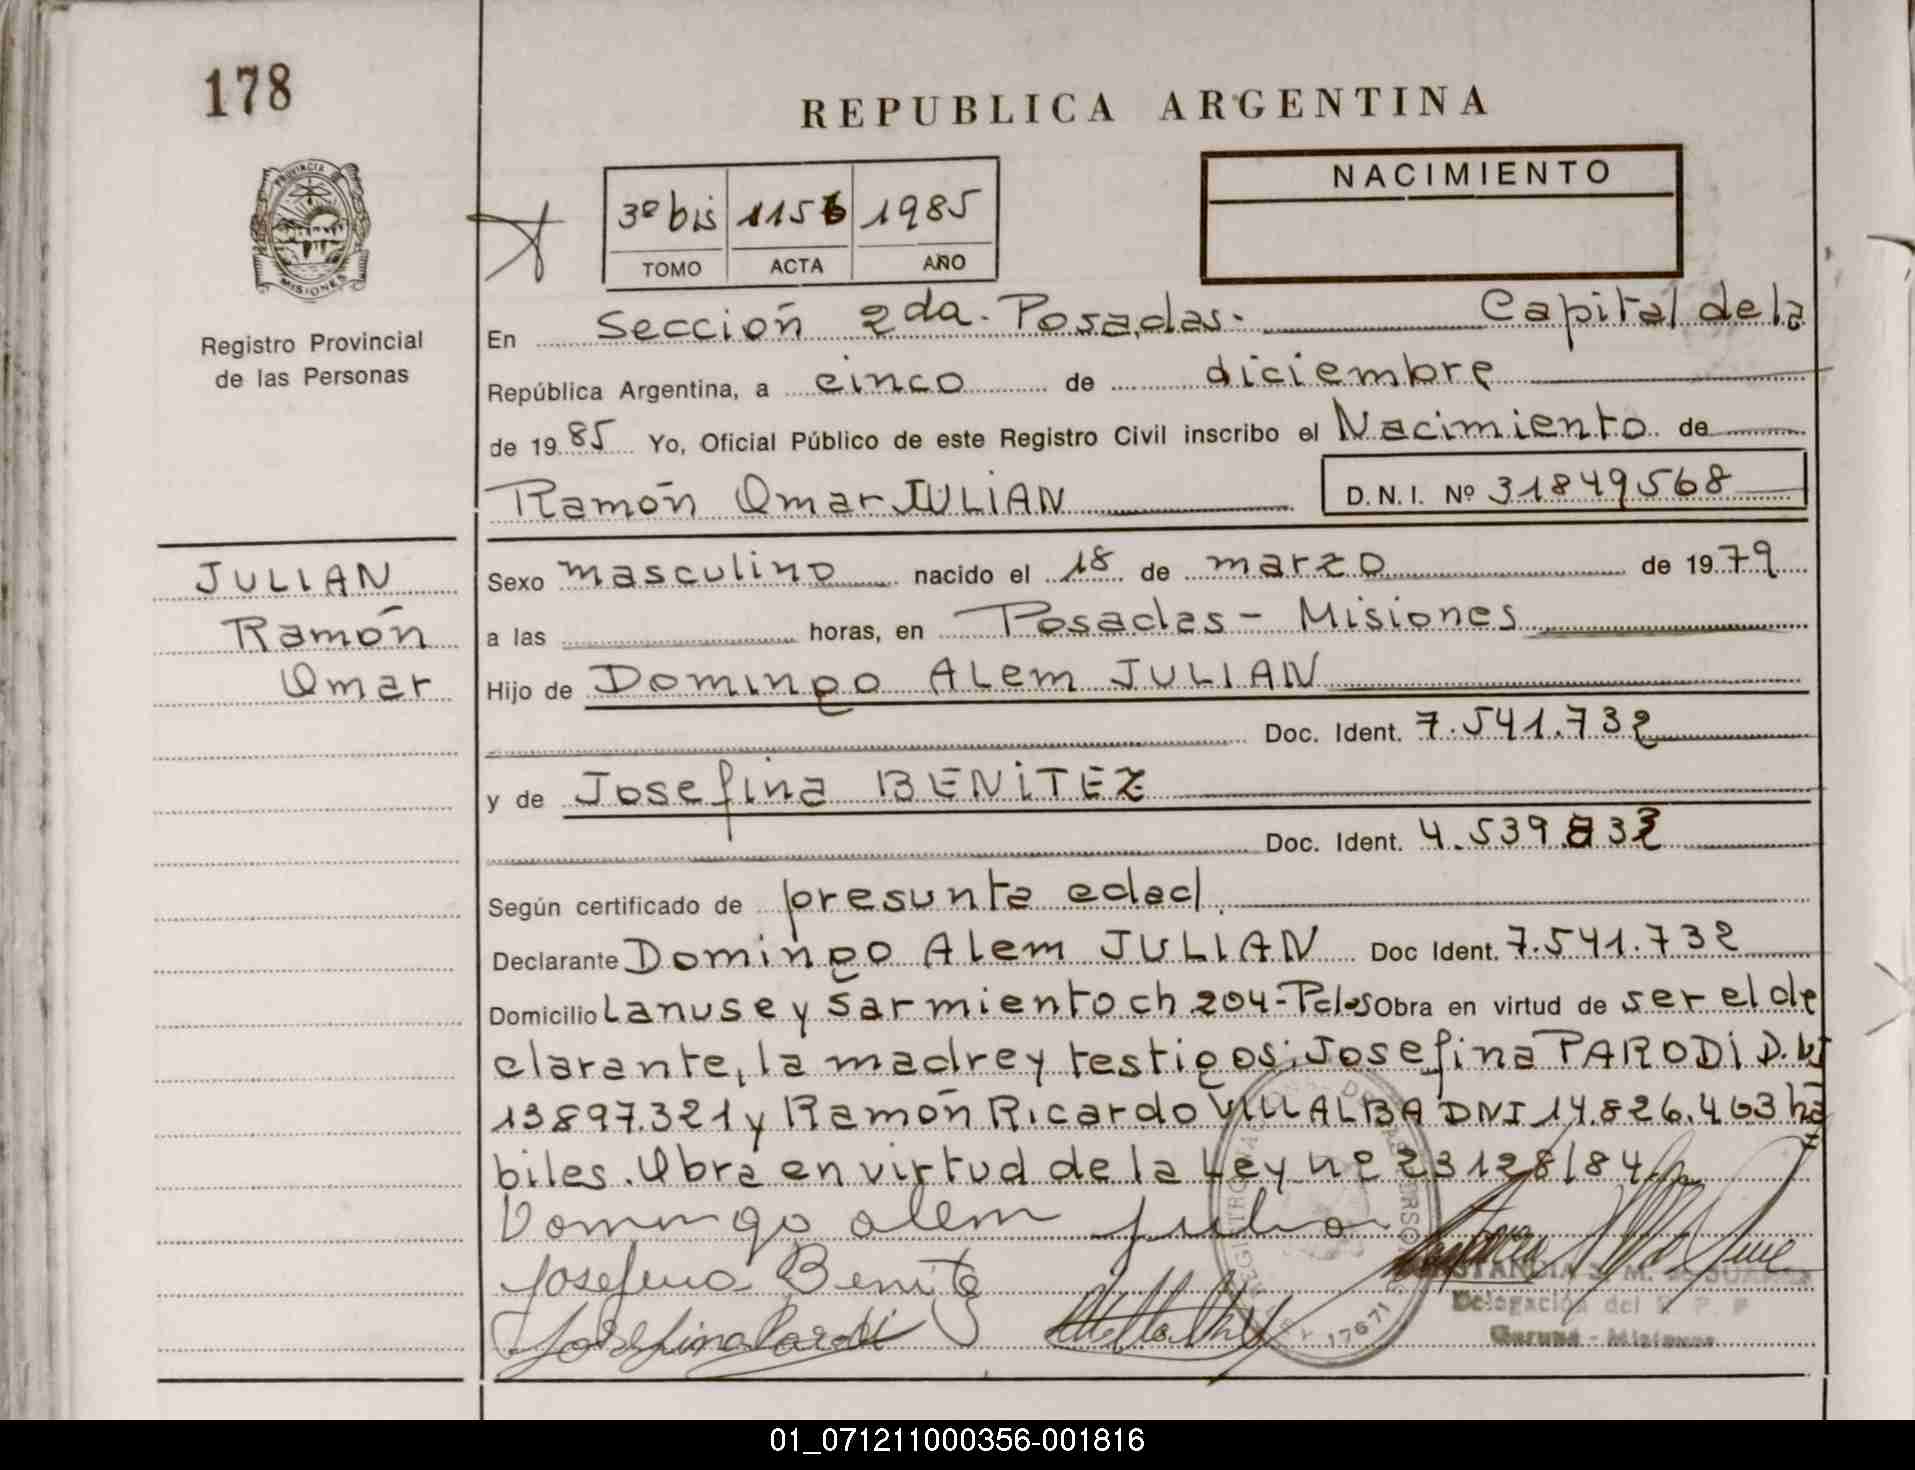 178
REPUBLICA ARGENTINA
PROVINCIA DE
MISIONES
3º bis 1156 1985
TOMO ACTA AÑO
NACIMIENTO
Registro Provincial
de las Personas
En Sección 2da. Posadas. Capital de la
República Argentina, a cinco de diciembre
de 1985 Yo, Oficial Público de este Registro Civil inscribo el Nacimiento de
Ramón Omar JULIAN D.N.I. Nº 31849568
JULIAN
Ramón
Omar
Sexo masculino nacido el 18 de marzo de 1979
a las horas, en Posadas - Misiones
Hijo de Domingo Alem JULIAN
Doc. Ident. 7.541.732
y de Josefina BENITEZ
Doc. Ident. 4.539.832
Según certificado de presunta edad.
Declarante Domingo Alem JULIAN Doc Ident. 7.541.732
Domicilio Lanuse y Sarmiento ch 204-Pdas Obra en virtud de ser el de
clarante, la madre y testigos: Josefina PARODI D.NI
13897.321 y Ramón Ricardo VILLALBA DNI 14.826.463 há
biles. Obra en virtud de la Ley nº 23128/84
Domingo alem julian
Josefina Benitez
Josefina Parodi
CONSTANCIA S. M. de SUAREZ
Delegación del R. P. P
Garupá - Misiones
17671
01_071211000356-001816